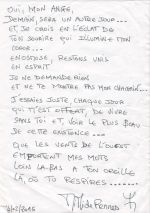 OUI, MON ANGE,
DEMAIN, SERA UN AUTRE JOUR...
ET JE CROIS EN L'ÉCLAT DE
TON SOURIRE QUI ILLUMINE MON
COEUR...
ENOSDÈSE, RESTONS UNIS
EN ESPRIT
JE NE DEMANDE RIEN
ET NE TE MONTRE PAS MON CHAGRIN...
J'ESSAIES JUSTE, CHAQUE JOUR
QUI M'EST OFFERT, DE VIVRE
SANS TOI ET, VOIR LE PLUS BEAU
DE CETTE EXISTENCE...
QUE LES VENTS DE L'OUEST
EMPORTENT MES MOTS
LOIN LÀ-BAS A TON OREILLE
LÀ, OÙ TU RESPIRES.......